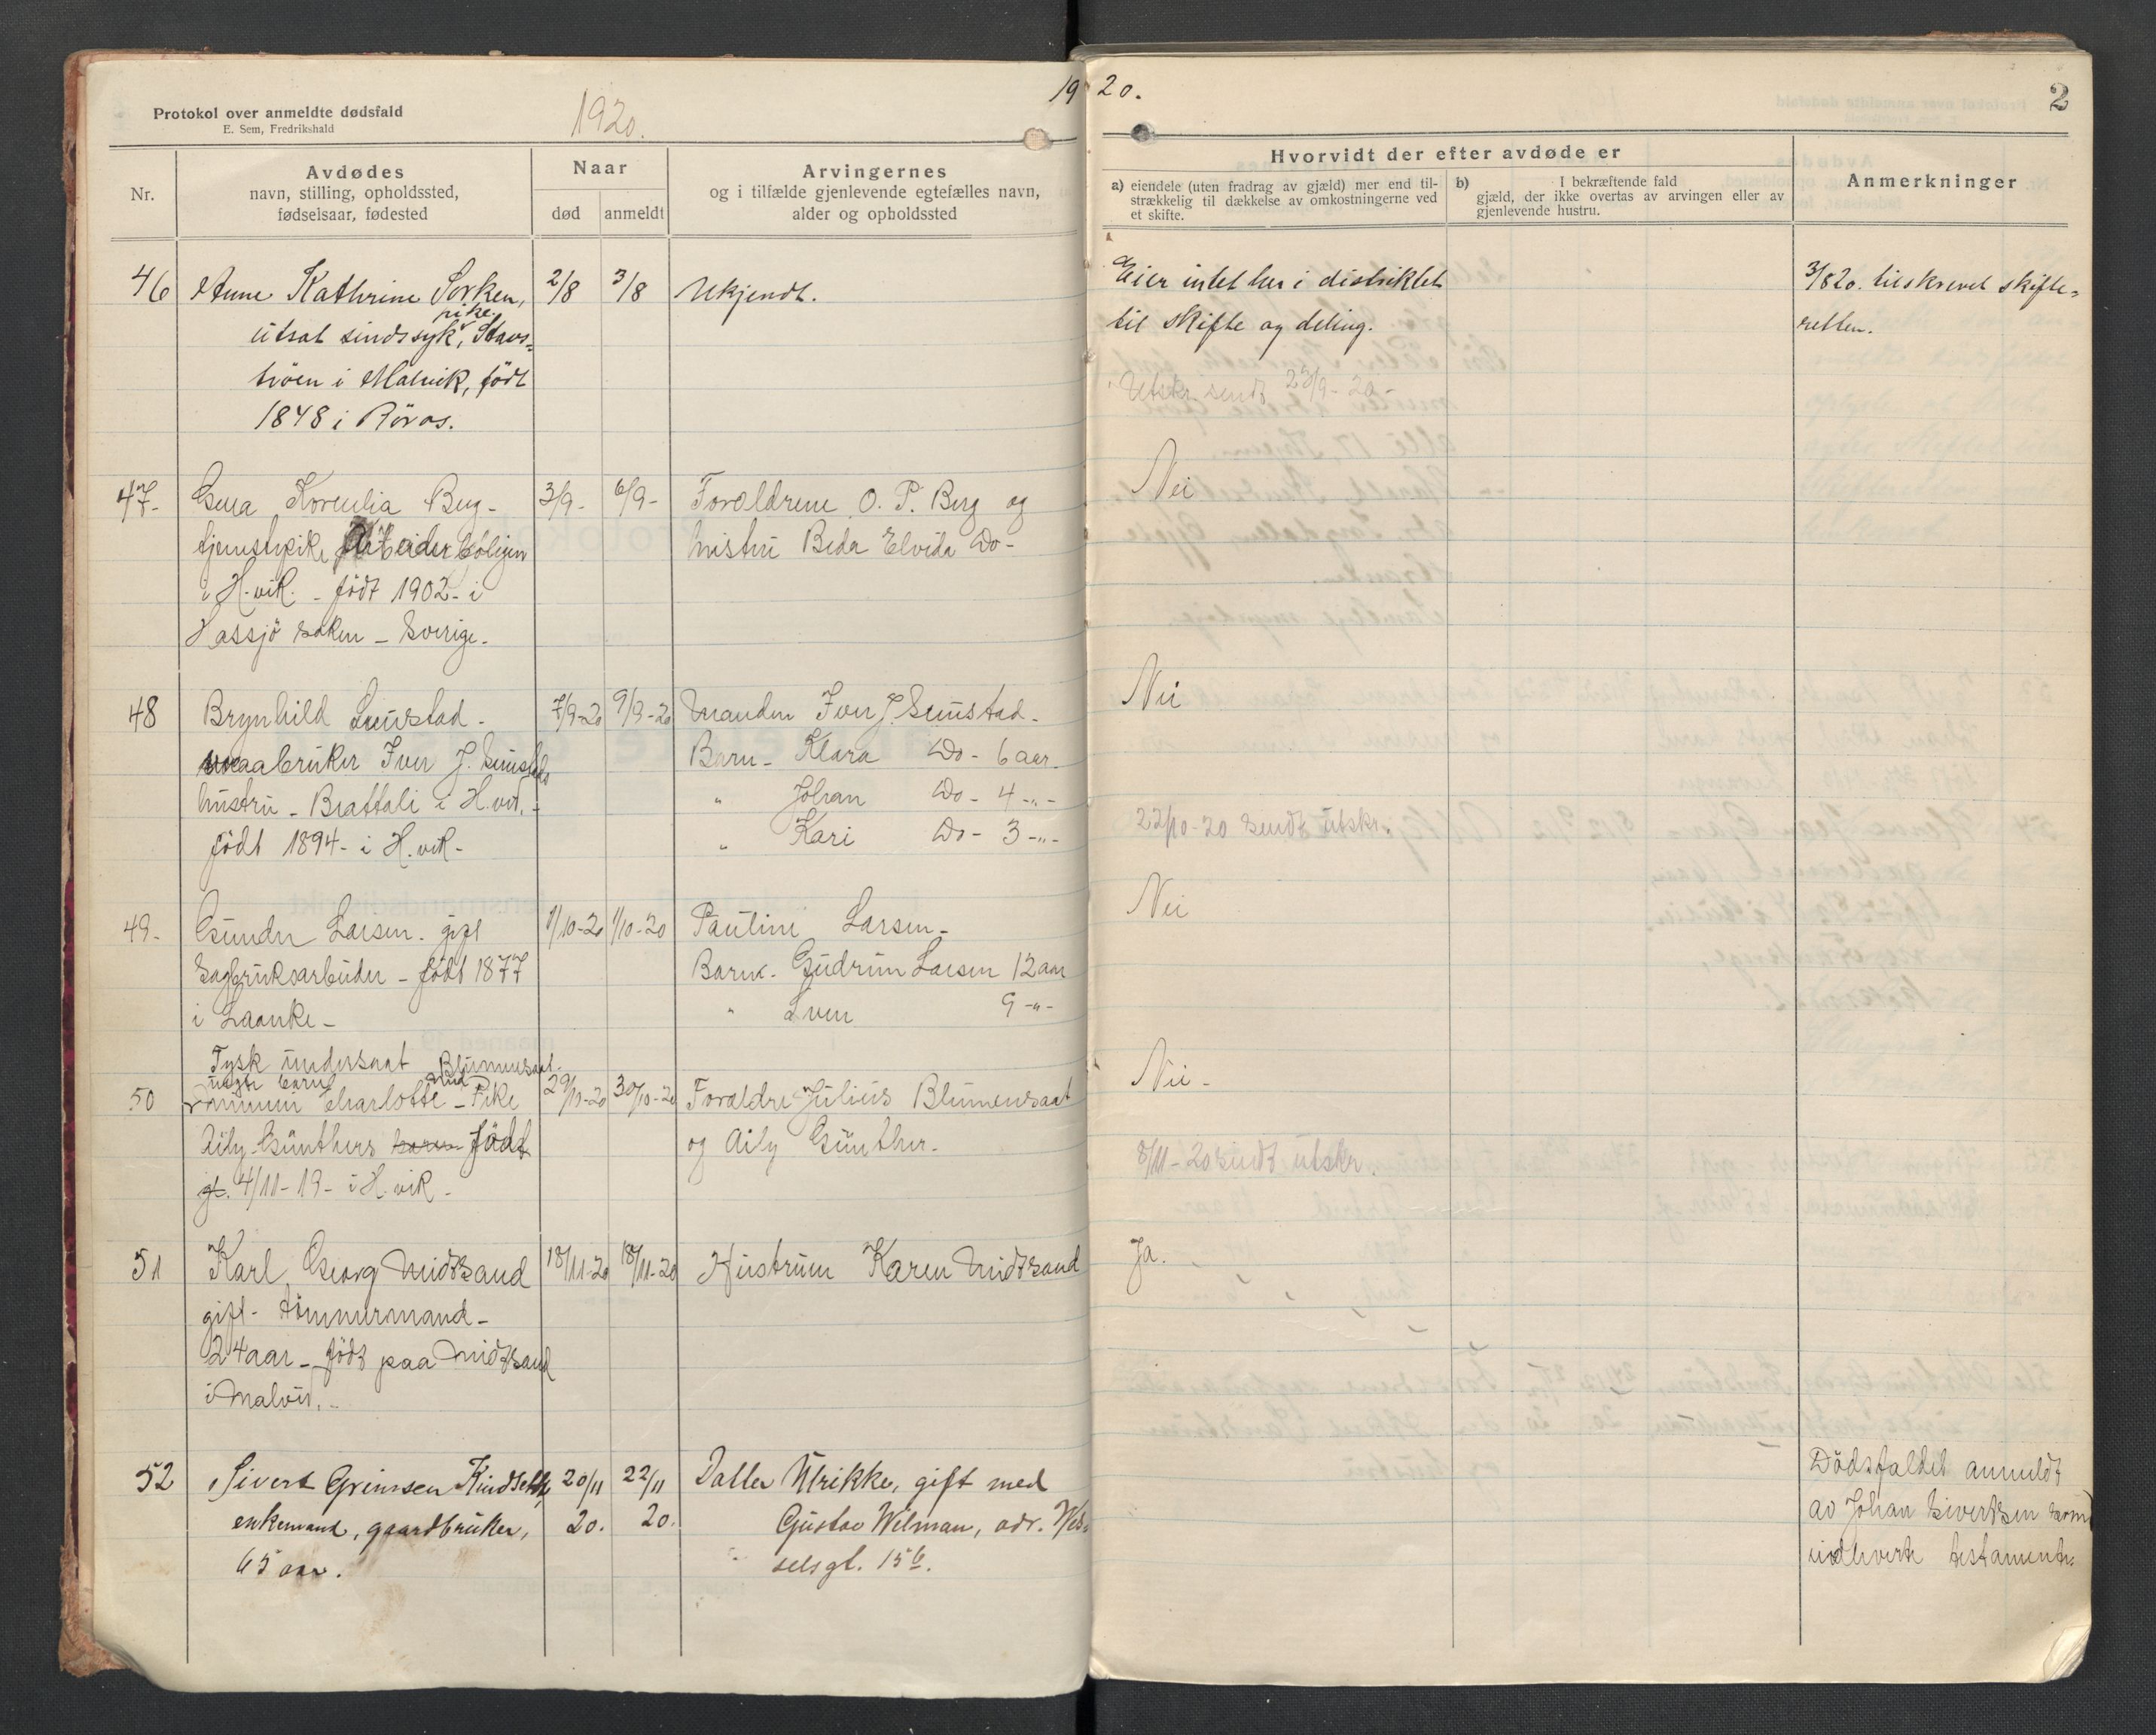 Protokol over anmeldte dødsfald
E. Sem, Fredrikshald
1920.
19 20.
2
Nr.
Avdødes
navn, stilling, opholdssted,
fødselsaar, fødested
Naar
død
anmeldt
Arvingernes
og i tilfælde gjenlevende egtefælles navn,
alder og opholdssted
Hvorvidt der efter avdøde er
a) eiendele (uten fradrag av gjæld) mer end til-
strækkelig til dækkelse av omkostningerne ved
et skifte.
b) I bekræftende fald
gjæld, der ikke overtas av arvingen eller av
gjenlevende hustru.
Anmerkninger
46 Anne Kathrine Sorken, 2/8 3/8 Ukjendt. Eier intet her i distriktet 3/8 20. tilskrevet skifte-
pike
utsat sindssyk, Stavs- til skifte og deling. retten.
tröen i Malvik, födt Utskr. sendt 23/9-20-
1848 i Röros.
47- Korenlia Berg- 3/9- 6/9- Foreldrene O. P. Berg og Nei
tjenstepike Arbeiderboligen hustru Beda Elvida Do-
i H.vik. - födt 1902- i
Hassjö Soken - Sverige.
48 Brynhild Sunstad- 7/9-20 9/9-20 Manden Iver J. Sunstad- Nei
smaabruker Iver J. Sunstads Barn- Klara Do- 6 aar
hustru - Brattali i H.vik.- " Johan Do- 4 -"-
födt 1894- i H.vik- " Kari Do- 3 -"- 22/10-20 Sendt utskr.
49- Gunder Larsen. gift 1/10-20 1/10-20 Pauline Larsen- Nei
Sagbruksarbeider - födt 1877 Barn- Gudrun Larsen 12 aar
i Laanke- " Sven 9 -"-
Tysk undersaat Blumensaat.
uegte barn
50 Charlotte - Pike 29/10-20 30/10-20 Foreldre Julius Blumensaat Nei-
Aily Günthers barn födt og Aily Günther.
4/11-19- i H.vik- 8/11-20 sendt utskr.
51 Karl Georg Midtsand 18/11-20 18/11-20 Hustrum Karen Midtsand Ja.
gift- tömmermand-
24 aar - födt paa Midtsand
i Malvik.-
52 Sivert Grimsen Kindseth, 20/11 22/11 Datter Ulrikke, gift med Dödsfaldet anmeldt
enkemand, gaardbruker, 20. 20. Gustav Wilman, adr. Wes- av Johan Sivertsen som
65 aar. selsgt. 15b. indleverte testamente